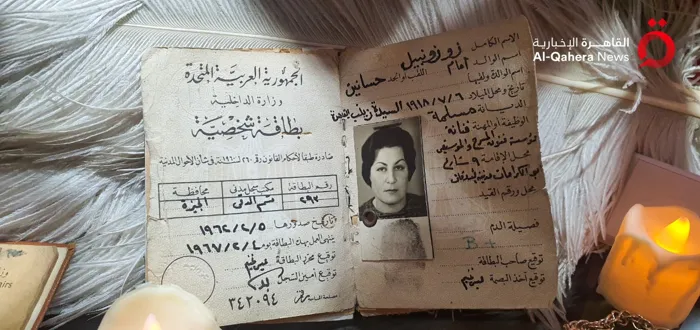 القاهرة الإخبارية
Al-Qahera News
الجمهورية العربية المتحدة
وزارة الداخلية
بطاقة شخصية
صادرة طبقا لأحكام القانون رقم ٢٦٠ لسنة ١٩٦٠ في شأن الأحوال المدنية
رقم البطاقة
مكتب سجل مدني
محافظة
٢٩٢
قسم الدقي
الجيزة
تاريخ صدورها ١٩٦٢/٢/٥
ينتهى العمل بهذه البطاقة يوم ١٩٦٧/٢/٤
توقيع محرر البطاقة
توقيع أمين السجل
٣٤٢٠٩٤
الاسم الكامل زوزو نبيل
اسم الوالد إمام اللقب أو الجد حسانين
اسم الوالدة ولقبها
تاريخ ومحل الميلاد ١٩١٨/٧/٦ السيدة زينب القاهرة
الديانة مسلمة
الوظيفة أو المهنة فنانة
مؤسسة فنون المسرح والموسيقى
محل الإقامة ٩ شارع
مدينة المهندسين
محل ورقم القيد
فصيلة الدم
B +
توقيع صاحب البطاقة
توقيع آخذ البصمة
airs